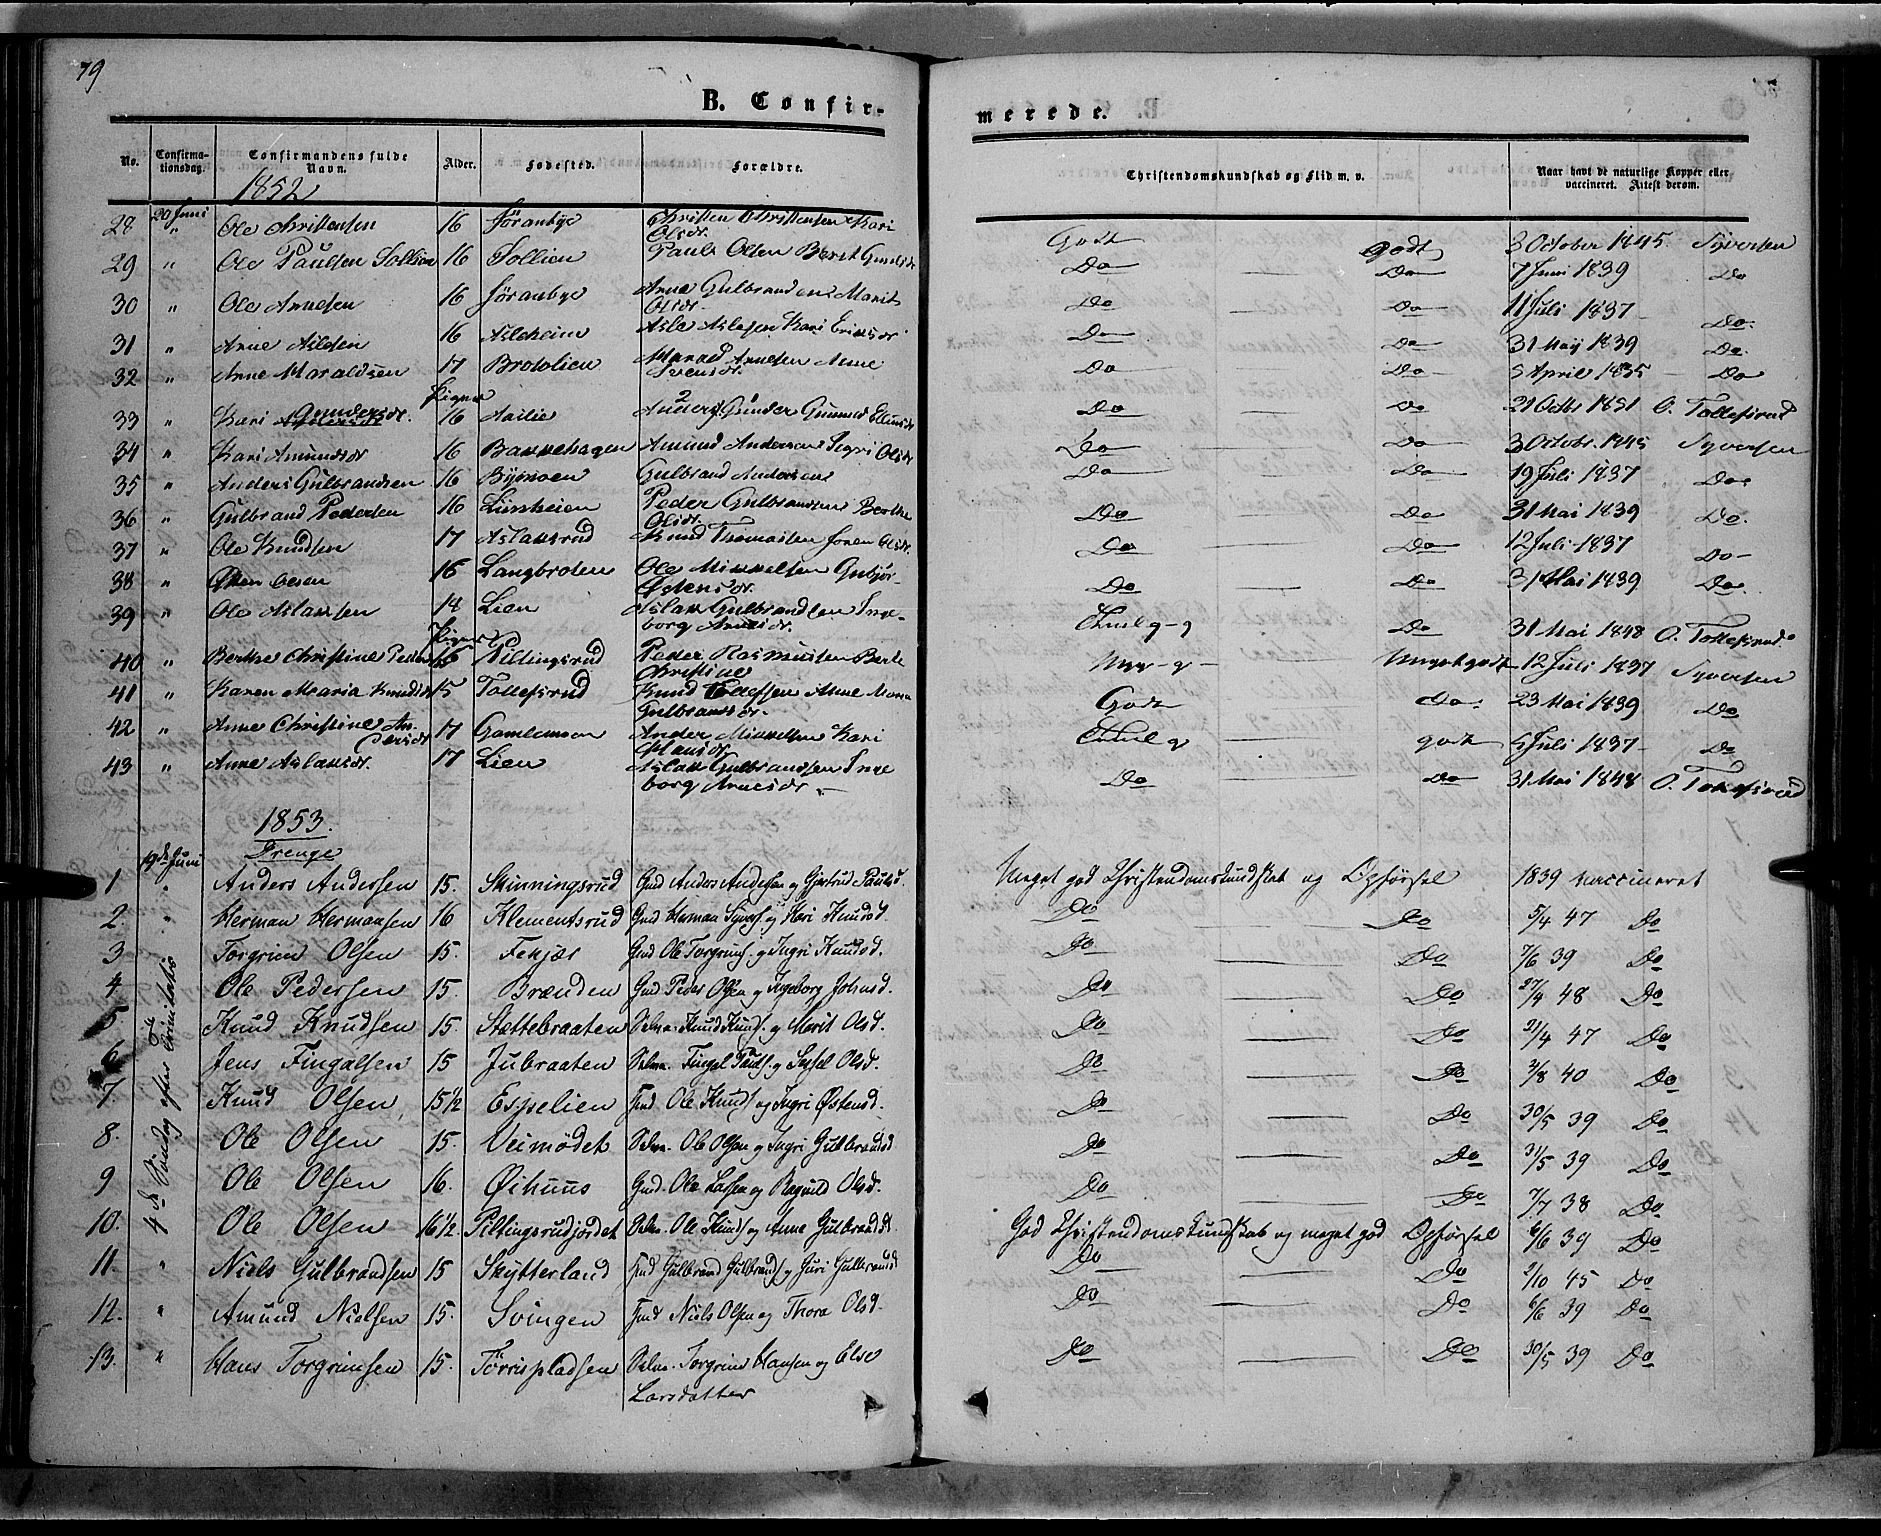 79
B. Confir-
merede.
No. Confirma-tionsdag. Confirmandens fulde Navn. Alder. Fødested. Forældre. Christendomskundskab og Flid m. v. Naar havt de naturlige Kopper eller vaccineret. Attest derom.
1852
28 20 Juni " Ole Christensen 16 Christen Christensen Kari Olsdr. Godt Godt 3 October 1845. Syversen
29 " Ole Paulsen Sollien 16 Sollien Paul Olsen Do Do 7 Juni 1839 Do
30 " Ole Arnesen 16 Arne Gulbrandsens Marit Olsdr. Do Do 11 Juli 1837 Do
31 " Arne Aslesen 16 Asleheim Asle Aslesen Kari Eriksdr Do Do 31 Maj 1839 Do
32 " Arne Haraldsen 17 Brotolien Arnesen Anne Svensdr. Do Do April 1835 Do
Piger
33 " Kari Gundersdr. 16 Aalie Do Do 21 Octbr 1851 O. Tollefsrud
34 " Kari Amundsdr 16 Bakkehagen Amund Andersens Sigri Olsdr Do Do 3 Octobr. 1845 Syversen
35 " Anders Gulbrandsen 16 Bymoen Gulbrand Andersens Do Do 19 Juli 1837 Do
36 " Gulbrand Pedersen 16 Peder Gulbrandsens Berthe Olsdr. Do Do 31 Mai 1839 Do
37 " Ole Knudsen 17 Aslaksrud Knud Tromassen Joren Olsdr. Do Do 12 Juli 1837 Do
38 " Østen Olsen 16 Langbroten Ole Mikkelsen Gubjør Østensdr. Do Do 31 Mai 1839 Do
39 " Ole Aslaksen 18 Lien Aslak Gulbrandsen Inge-
borg Arnesdr. Do 31 Mai 1848 O. Tollefsrud
Piger
40 " Berthe Christine Peders 16 Piltingsrud Peder Rasmussen Berte
Christine Meget godt 12 Juli 1837 Syversen
41 " Karen Maria Knudsdr 15 Tollefsrud Knud Tollefsen Anne Maria
Gulbrandsdr. Godt Do 23 Mai 1839 Do
42 " Anne Christine An-
dersdr 17 Gamlemoen Ander Mikkelsen Kari
Hansdr. godt Juli 1837 Do
43 " Anne Aslaksdr. 17 Lien Aslak Gulbrandsen Inge
borg Arnesdr Do Do 31 Mai 1848 O. Tollefsrud
1853.
Drenge
19de Juni
4de Søndag efter Trinitatis
1 " Anders Andersen 15. Skinningsrud Gmd Anders Andersen og Gjertrud Paulsd. Meget god Christendomskundskab og Opførsel 1839 vaccineret
2. " Herman Hermansen 16 Klementsrud Gmd Herman Syvers. og Kari Knudsd. Do Do 5/4 47 Do
3 Torgrim Olsen 15. Fekjær Gmd Ole Torgrims. og Ingri Knudsd. Do Do 7/6 39 Do
4 Ole Pedersen 15. Brænden Gmd Peder Olsen og Ingeborg Johnsd. Do Do 27/4 48 Do
5 Knud Knudsen 15. Støttebraaten Selve. Knud Knuds. og Marit Olsd. Do Do 21/4 47 Do
6 Jens Fingalsen 15 Jubraaten Fingal Pauls. og Sissel Olsd. Do Do 2/8 40 Do
7. Knud Olsen 15 1/2 Espelien Gmd Ole Knuds og Ingri Østensd. Do Do 30/5 39 Do
8. Ole Olsen 15. Veimødet Ole Olsen og Ingri Gulbrandsd Do Do 31/5 39 Do
9 Ole Olsen 16. Øihuus Gmd. Ole Larsen og Ragnild Olsd. Do Do 7/7 38 Do
10. Ole Olsen 16 1/2 Piltingsrudjordet Ole Knuds og Anne Gulbrandsd. God Christendomskundskab og meget god Opførsel 6/6 39 Do
11. " Niels Gulbrandsen 15 Skytterland Gmd Gulbrand Gulbrands og Guri Gulbrandsd Do Do 2/10 45 Do
12. " Amund Nielsen 15. Svingen Gmd Niels Olsen og Thora Olsd. Do Do 6/6 39 Do
13. " Hans Torgrimsen 15. Tørrispladsen Torgrim Hansen og Else
Larsdatter Do Do 30/5 39 Do